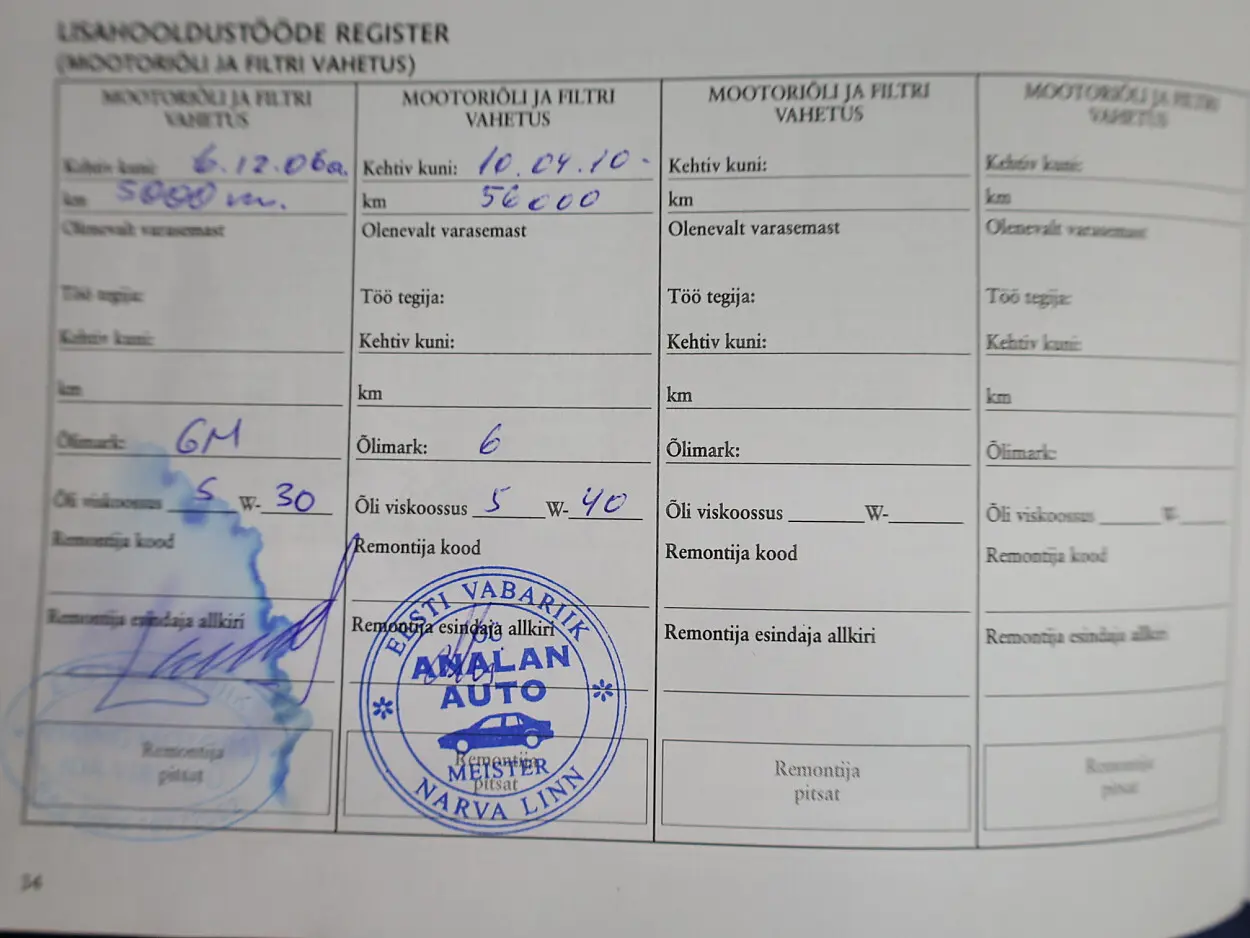 LISAHOOLDUSTÖÖDE REGISTER
(MOOTORIÕLI JA FILTRI VAHETUS)
MOOTORIÕLI JA FILTRI
VAHETUS
Kehtiv kuni: 6.12.06a.
km 5000 m.
Olenevalt varasemast
Töö tegija:
Kehtiv kuni:
km
Õlimark: GM
Õli viskoossus 5 W-30
Remontija kood
Remontija esindaja allkiri
Remontija
pitsat
MOOTORIÕLI JA FILTRI
VAHETUS
Kehtiv kuni: 10.04.10
km 56000
Olenevalt varasemast
Töö tegija:
Kehtiv kuni:
km
Õlimark: 6
Õli viskoossus 5 W-40
Remontija kood
Remontija esindaja allkiri
EESTI VABARIIK
OÜ
ANALAN
AUTO
MEISTER
NARVA LINN
Remontija
pitsat
MOOTORIÕLI JA FILTRI
VAHETUS
Kehtiv kuni:
km
Olenevalt varasemast
Töö tegija:
Kehtiv kuni:
km
Õlimark:
Õli viskoossus ______W-______
Remontija kood
Remontija esindaja allkiri
Remontija
pitsat
MOOTORIÕLI JA FILTRI
VAHETUS
Kehtiv kuni:
km
Olenevalt varasemast
Töö tegija:
Kehtiv kuni:
km
Õlimark:
Õli viskoossus ______W-______
Remontija kood
Remontija esindaja allkiri
Remontija
pitsat